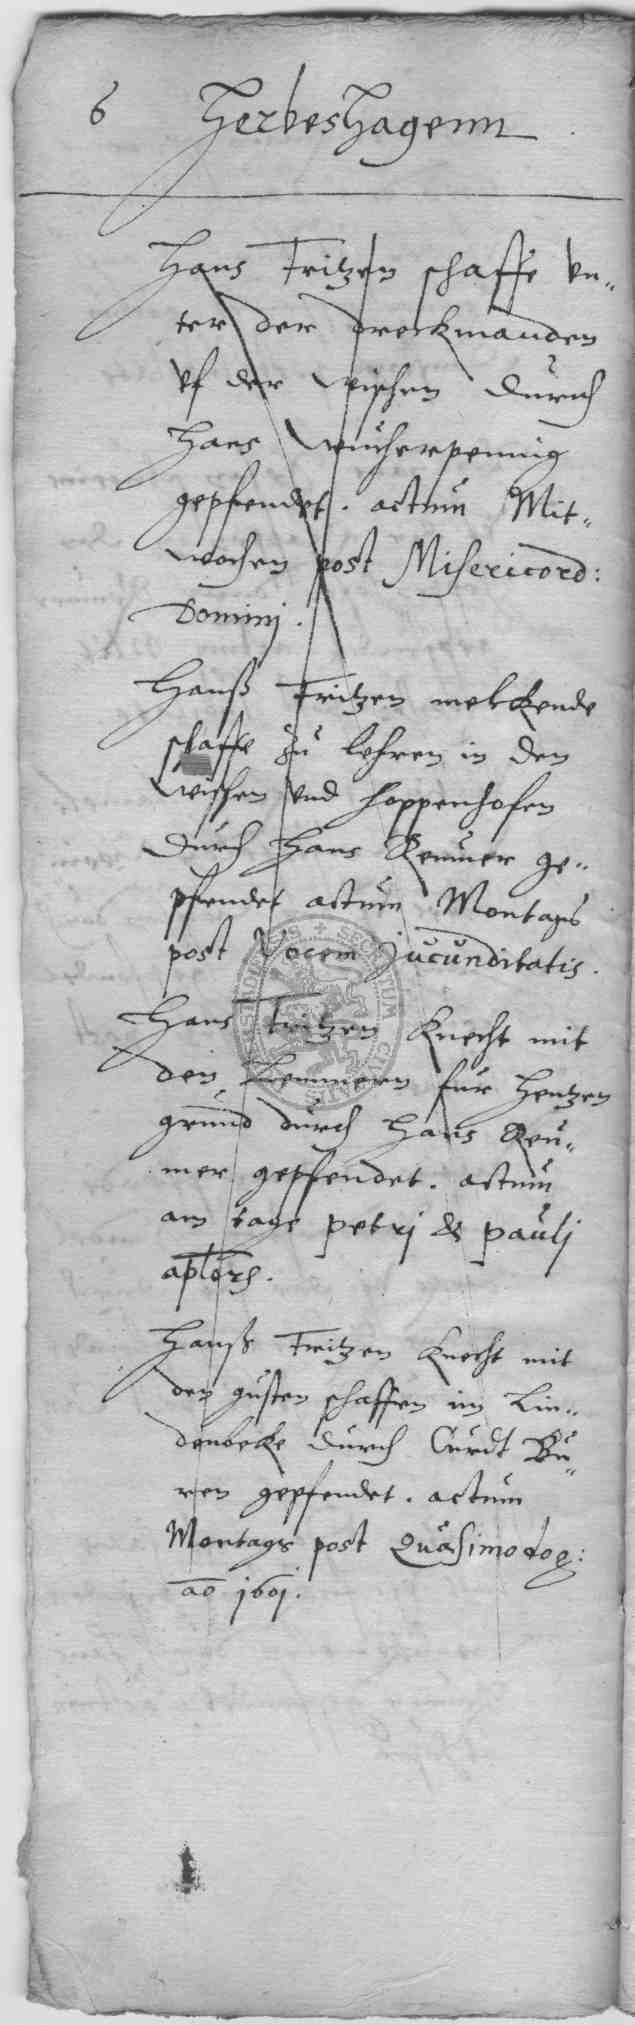 6 Herbeshagenn
Hans Fritzen schaffe vn„
ter der dreckmanden
vf der wischen durch
Hans Wucherpennig
gepfendet. actum Mit„
wochen post Misericord:
Domini.
Hanß Fritzen melckende
schaffe zu lehren in den
wischen vnd hoppenhofen
durch Hans Reumer ge„
pfendet actum Montags
post Vocem jucunditatis.
Hans Fritzen Knecht mit
den Lemmern fur Hentzen
grund durch Hans Reu„
mer gepfendet. actum
am tage petrj & paulj
aplors.
Hanß Fritzen Knecht mit
den gusten schaffen im Lin„
denbeke durch Curdt Bu„
ren gepfendet. actum
Montags post Quasimodog:
ao 1601.